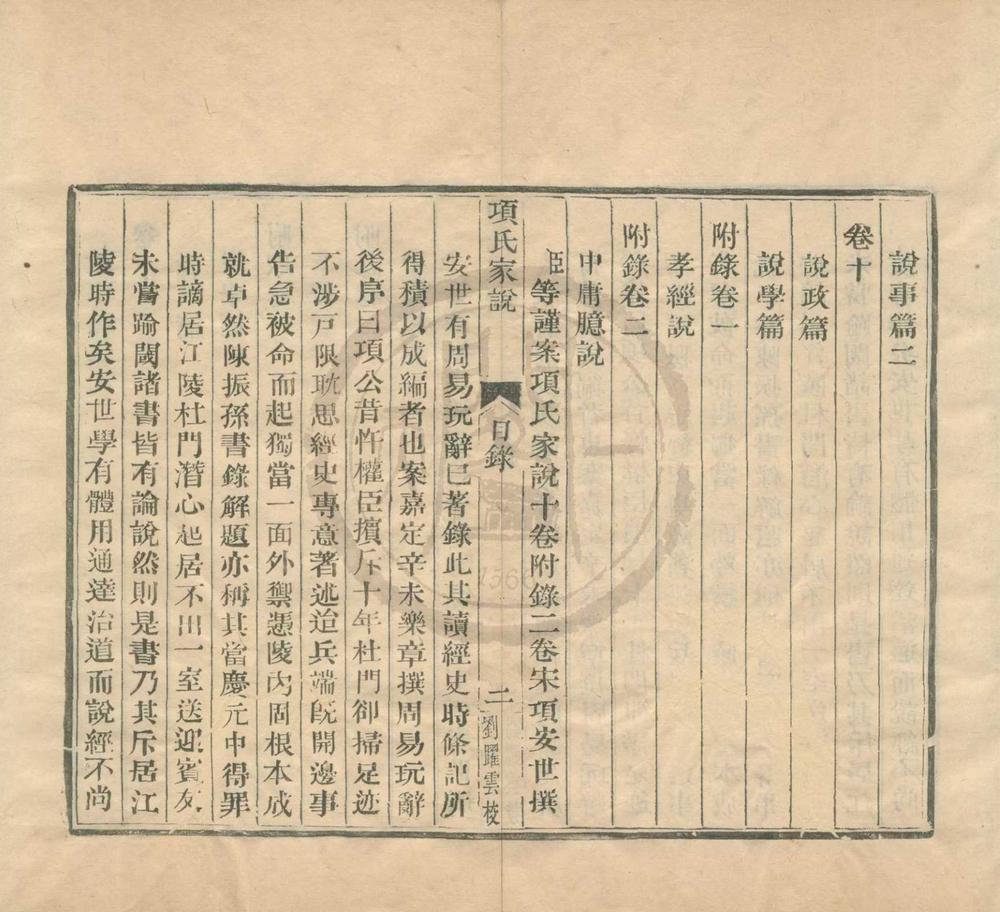 說事篇二
卷十
說政篇
說學篇
附錄卷一
孝經說
附錄卷二
中庸臆說
臣等謹案項氏家說十卷附錄二卷宋項安世撰
項氏家說 目錄 二 劉躍雲校
安世有周易玩辭已著錄此其讀經史時條記所
得積以成編者也案嘉定辛未樂章撰周易玩辭
後序曰項公昔忤權臣擯斥十年杜門卻掃足迹
不涉戸限耽思經史專意著述迨兵端旣開邊事
告急被命而起獨當一面外禦憑陵內固根本成
就卓然陳振孫書錄解題亦稱其當慶元中得罪
時謫居江陵杜門潛心起居不出一室送迎賓友
未嘗踰閾諸書皆有論說然則是書乃其斥居江
陵時作矣安世學有體用通達治道而說經不尚